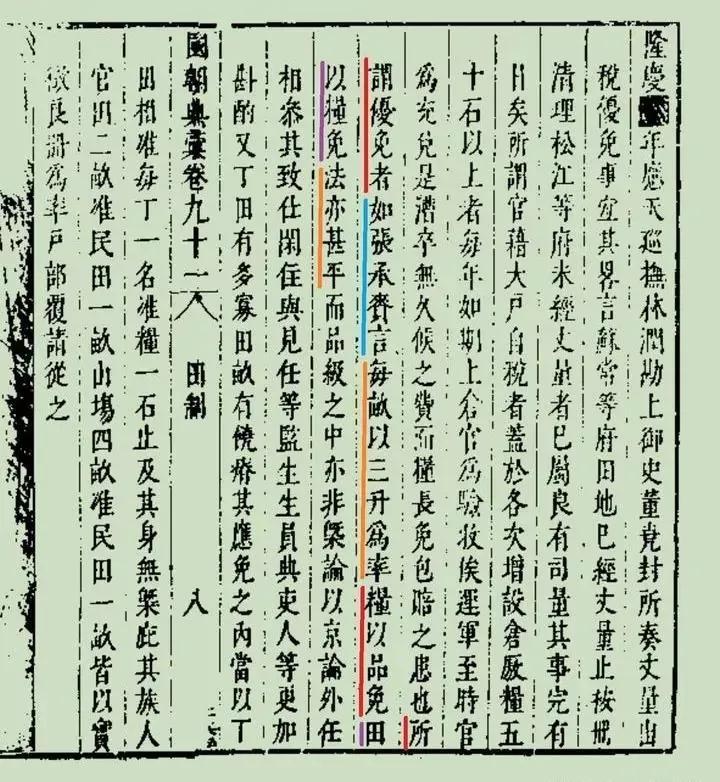 隆慶年應天巡撫林潤勘上御史董堯封所奏丈量田
稅優免事宜其畧言蘇常等府田地已經丈量止按冊
清理松江等府未經丈量者已屬良有司量其事完有
日矣所謂官藉大戶自稅者蓋於各次增設倉厫糧五
十石以上者每年如期上倉官為驗收俟運軍至時官
為充兌是漕卒無久候之費而糧長免包賠之患也所
謂優免者如張承賚言每畝以三升為率糧以品免田
以糧免法亦甚平而品級之中亦非槩論以京論外任
相參其致仕閑住與見任等監生生員典吏人等更加
斟酌又丁田有多寡田畝有饒瘠其應免之內當以丁
國朝典彙卷九十一 田制 八
田相准每丁一名准糧一石止及其身無槩庇其族人
官田二畝准民田一畝山塲四畝准民田一畝皆以實
徵良冊為率戶部覆請從之